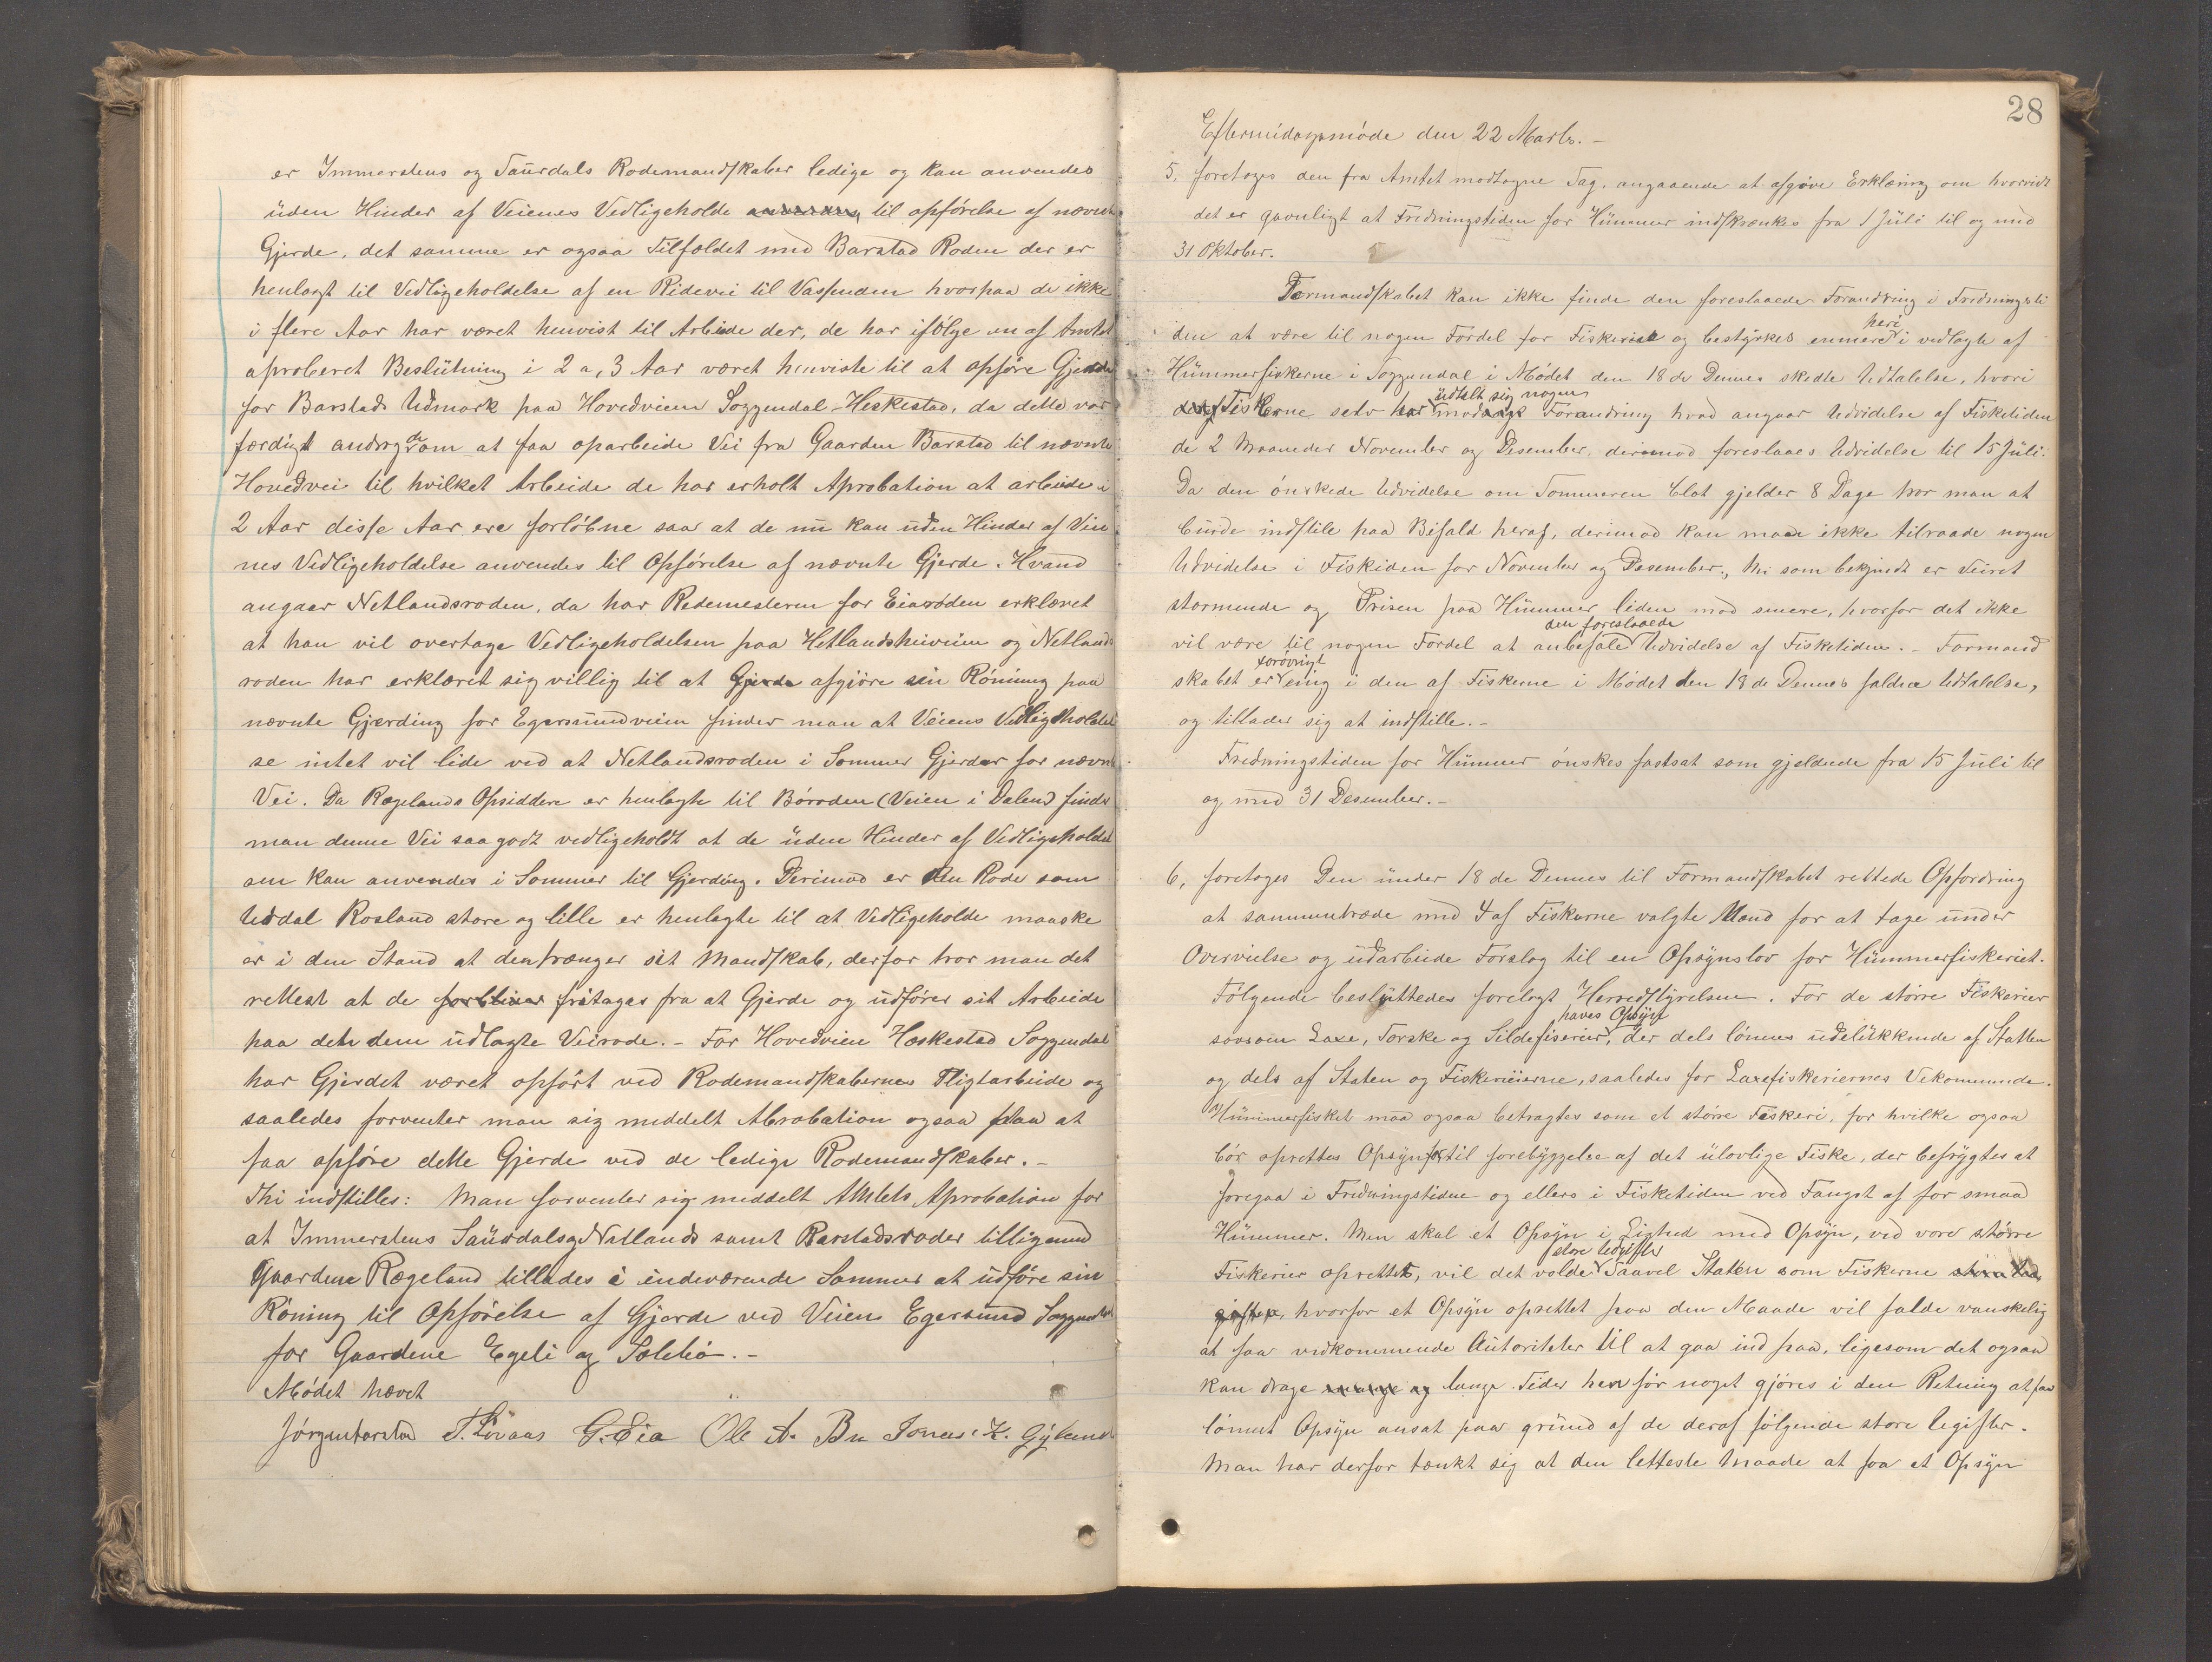 er Immerstens og Saurdals Rodemandskaber ledige og kan anvendes
uden Hinder af Veienes Vedligeholde til opførelse af nævnte
Gjerde, det samme er ogsaa Tilfældet med Barstad Roden der er
henlagt til Vedligeholdelse af en Ridevei til Vassenden hvorpaa de ikke
i flere Aar har været henvist til Arbeide der, de har ifølge en af Amtet
aproberet Beslutning i 2 a, 3 Aar været henviste til at opføre Gjerde
for Barstads Udmark paa Hovedveien Soggendal-Heskestad, da dette var
færdigt androg de om at faa oparbeide Vei fra Gaarden Barstad til nævnte
Hovedvei til hvilket Arbeide de har erholt Aprobation at arbeide i
2 Aar disse Aar ere forløbne saa at de nu kan uden Hinder af Veie
nes Vedligeholdelse anvendes til Opførelse af nævnte Gjerde. Hvand
angaar Netlandsroden, da har Rodemesteren for Eiaroden erklæret
at han vil overtage Vedligeholdelsen paa Hetlandsheiveien og Netlands
roden har erklæret sig villig til at Gjerde afgjøre sin Roning paa
nævnte Gjerding for Egersundveien finder man at Veiens Vedligeholdel
se intet vil lide ved at Netlandsroden i Sommer Gjerder for nævnte
Vei. Da Rægelands Opsiddere er henlagte til Børoden (Veien i Dalen) finder
man denne Vei saa godt vedligeholdt at de uden Hinder af Vedligeholdel
sen kan anvendes i Sommer til Gjerding. Derimod er den Rode som
Urdal Rosland store og lille er henlagte til at Vedligeholde maaske
er i den Stand at den trænger sit Mandskab, derfor tror man det
rettest at de forbliver fritages fra at Gjerde og udfører sit Arbeide
paa dette dem udlagte Veirode. – For Hovedveien Heskestad Soggendal
har Gjerdet været opført ved Rodemandskabernes Pligtarbeide og
saaledes forventer man sig meddelt Abrobation ogsaa paa at
faa opføre dette Gjerde ved de ledige Rodemandskaber. –
Thi indstilles: Man forventer sig meddelt Amtets Aprobation for
at Immerstens Saurdals og Netlands samt Barstadsroder tilligemed
Gaardene Rægeland tillades i indeværende Sommer at udføre sin
Roning til Opførelse af Gjerde ved Veien Egersund Soggendal
for Gaardene Egeli og Sælebø. –
Mødet hævet
Jørgen Barstad T. Løvaas G. Eia Ole A. Bu Jonas K. Gyland
28
Eftermidagsmøde den 22 Marts. –
5. foretoges den fra Amtet modtagne Sag, angaaende at afgive Erklæring om hvorvidt
det er gavnligt at Fredningstiden for Hummer indskrænkes fra 1 Juli til og med
31 Oktober.
Formandskabet kan ikke finde den foreslaaede Forandring i Fredningsti
heri
den at være til nogen Fordel for Fiskeriet og bestyrkes enmere i vedlagte af
Hummerfiskerne i Soggendal i Mødet den 18 de Dennes skedte Udtalelse, hvori
udtalt sig nogen
Fiskerne selv har mod Forandring hvad angaar Udvidelse af Fisketiden
de 2 Maaneder November og Desember, derimod foreslaaes Udvidelse til 15 Juli.
Da den ønskede Udvidelse om Sommeren blot gjelder 8 Dage tror man at
burde indstile paa Bifald heraf, derimod kan man ikke tilraade nogen
Udvidelse i Fiskiden for November og Desember, thi som bekjendt er Veiret
stormende og Prisen paa Hummer liden mod senere, hvorfor det ikke
den foreslaaede
vil være til nogen Fordel at anbefale Udvidelse af Fisketiden. – Formand
forøvrigt
skabet er enig i den af Fiskerne i Mødet den 18 de Dennes faldne Udtalelse,
og tillader sig at indstille. –
Fredningstiden for Hummer ønskes fastsat som gjeldende fra 15 Juli til
og med 31 Desember. –
6, foretoges Den under 18 de Dennes til Formandskabet rettede Opfordring
at sammentræde med 4 af Fiskerne valgte Mænd for at tage under
Overveielse og udarbeide Forslag til en Opsynslov for Hummerfiskeriet.
Følgende besluttedes forelagt Herredstyrelsen. For de større Fiskerier
haves Opsyn
saasom Laxe, Torske og Sildefiserier, der dels lønnes udelukkende af Statten
og dels af Staten og Fiskerieierne, saaledes for Laxefiskeriernes Vekommende.
Hummerfisket maa ogsaa betragtes som et større Feskeri, for hvilke ogsaa
bør oprettes Opsyn til forebyggelse af det ulovlige Fiske, der befrygtes at
foregaa i Fredningstiden og ellers i Fisketiden ved Fangst af for smaa
Hummer. Men skal et Opsyn i Lighed med Opsyn, ved vore større
store Udgifter
Fiskerier oprettes, vil det volde Saavel Statten som Fiskerne
hvorfor et Opsyn oprettet paa den Maade vil falde vanskelig
at faa vedkommende Autoriteter til at gaa ind paa, ligesom det ogsaa
kan drage lange Tider hen før noget gjøres i den Retning at faa
lønnet Opsyn ansat paa grund af de deraf følgende store Uegifter.
Man har derfor tænkt sig at den letteste Maade at faa et Opsyn